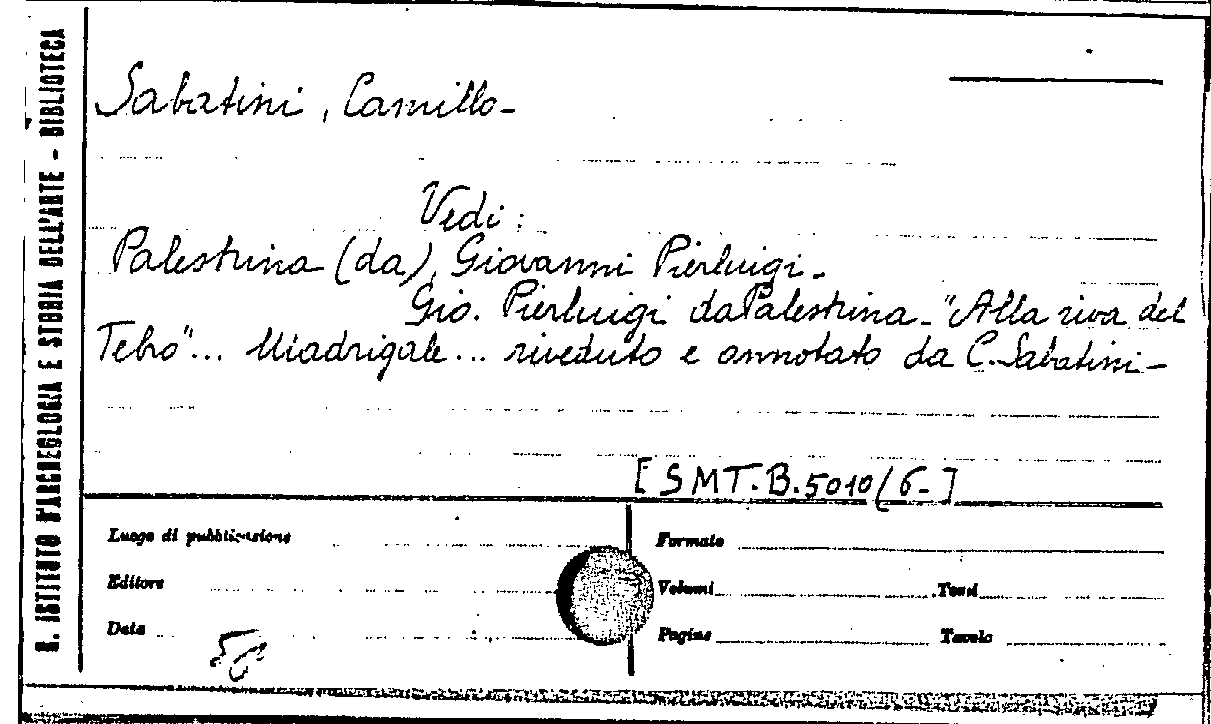 R. ISTITUTO D'ARCHEOLOGIA E STORIA DELL'ARTE - BIBLIOTECA
Sabatini, Camillo-
Vedi:
Palestrina (da), Giovanni Pierluigi-
Gio. Pierluigi da Palestrina - "Alla riva del
Tebro"... Madrigale... riveduto e annotato da C. Sabatini-
[SMT.B.5010/6-]
Luogo di pubblicazione
Formato
Editore
Volumi
Tomi
Data
Pagine
Tavole